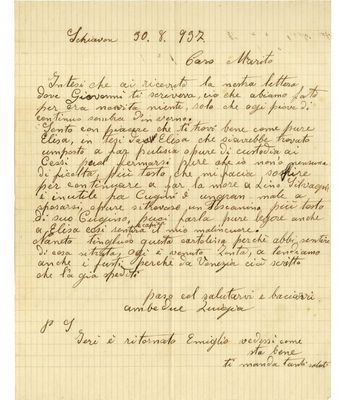 Schiavon 30. 8. 937
Caro Marito
Intesi che ai ricevuto la nostra lettera
dove Giovanni ti scriveva ciò che abiamo fatto
per ora novità niente, solo che ogi piove di
continuo sembra d'inverno.
Sento con piacere che ti trovi bene come pure
Elisa, in tegi da Elisa che si avrebbe trovato
un posto a far pulisia opure di custodia ai
Cessi può fermarsi pure che io non ò
di Licolta, più tosto che mi facia
per contenuare a far la more a Lino
è inutile fra Cugini è un gran male a
sposarsi, opure si trovase un Toscanino più tosto
di suo Cugino, puoi farla pure legere anche
a Elisa così sentirà il mio malincuore.
questa cartolina perchè abbi, sentire
di essa ritrata, ogi è venuto a
anche i fusti perchè da Venezia ciài scritto
che là già spediti
paso col salutarvi e baciarvi
ambe due Luigia
P S
Ieri è ritornato Emiglio vedessi come
sta bene
ti manda tanti saluti